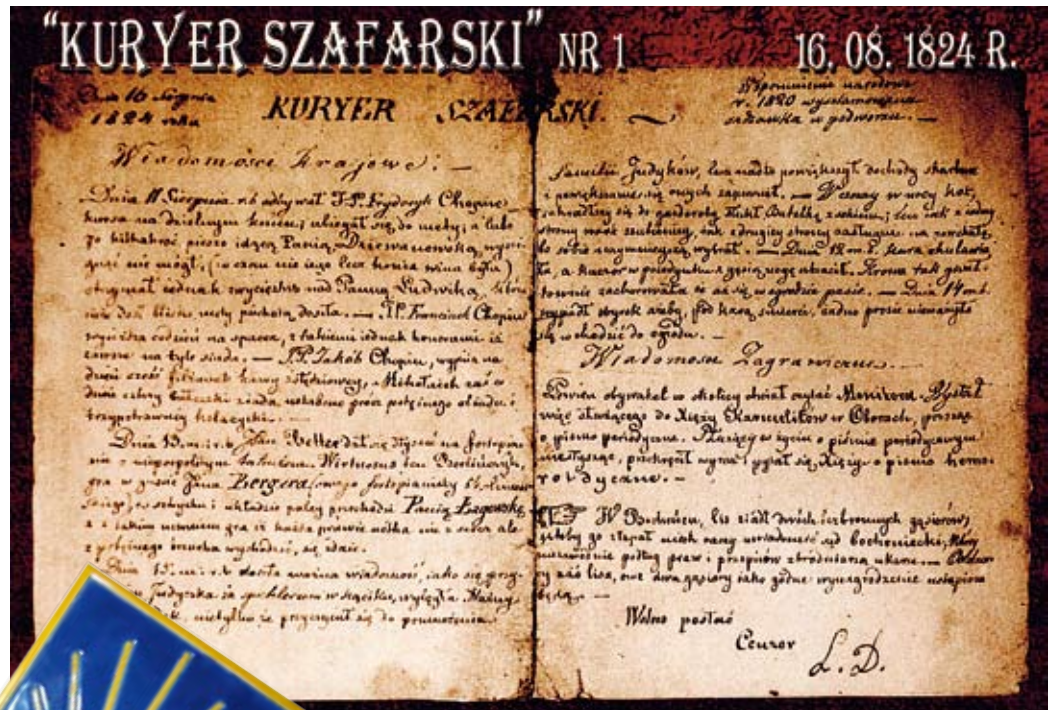 "KURYER SZAFARSKI" NR 1 16. 08. 1824 R.
Dnia 16 Sierpnia
1824 roku
KURYER SZAFARSKI.
Wspomnienie narodowe
r. 1820
w podworzu. —
Wiadomości Krajowe: —
Dnia 11 Sierpnia r.b. odbywał J.P. Fryderyk Chopin
kursa na dzielnym koniu; ubiegał się do mety; a lubo
kilkakroć pieszo idącej Panią Dziewanowską
nie mógł, (to czem nie jego lecz konia wina była)
otrzymał iednak zwycięstwo nad Panną Ludwiką, która
iuż dość blisko mety piechotą doszła. — J.P. Franciszek Chopin
codzień na spacer, z takiemi iednak honorami iż
zawsze na tyle siada. — J.P. Jakób Chopin, wypiia na
dzień sześć filiżanek kawy żołędziowey, Mikołaiek zaś
dzień cztery bułeczki ziada, notabene prócz potężnego obiadu i
kolacyi. —
Dnia 15. m. i r. b. Pan Better dał się słyszeć na fortepia-
nie z niepospolitym talentem. Wirtuosus ten Berlińczyk,
gra w guście Pana Bergera
i układzie palcy przechodzi Panią Łagowską
a z takim gra iż każda prawie nótka nie z serca ale
z potężnego brzucha wychodzić się zdaie.
Dnia 15. m. i r. b. doszła ważna wiadomość, iako się
Indyczka za śpichlerzem w kąciku wylęgła. Ważny
nietylko że przyczynił się do pomnożenia
familii Jndyków, lecz nadto powiększył dochody skarbu
i powiększanie się onych zapewnił. — Wczoray w nocy kot,
zakradłszy się do garderoby stłukł butelkę z sokiem; lecz iak z iedney
strony wart szubienicy, tak z drugiey strony zasługuie na pochwałę,
bo sobie naymnieyszą wybrał. — Dnia 12 m. b. kura okulawia-
ła, a kaczor w poiedynku z gęsią nogę utracił. Krowa tak gwał-
townie zachorowała że aż się w ogrodzie pasie. — Dnia 14 m. b.
wypadł wyrok aby, pod karą śmierci, żadne prosie nieważyło
się wchodzić do ogrodu. —
Wiadomości Zagraniczne. —
Pewien obywatel w okolicy chciał czytać Monitora. Posłał
więc służącego do Xięży Karmelitów w Oborach, prosząc
o pismo periodyczne. Służący w życiu o piśmie periodycznym
niesłysząc, przekręcił wyraz i pytał się Xięży o pismo hemo-
roidyczne. —
W Bocheńcu, lis ziadł dwóch bezbronnych gąsiorów,
ktoby go złapał niech raczy uwiadomić sąd bocheniecki, który
niezawodnie podług praw i przepisów zbrodniarza ukarze. —
zaś lisa, owe dwa gąsiory iako godne wynagrodzenie ustąpione
będą. —
Wolno posłać
Cenzor
L. D.